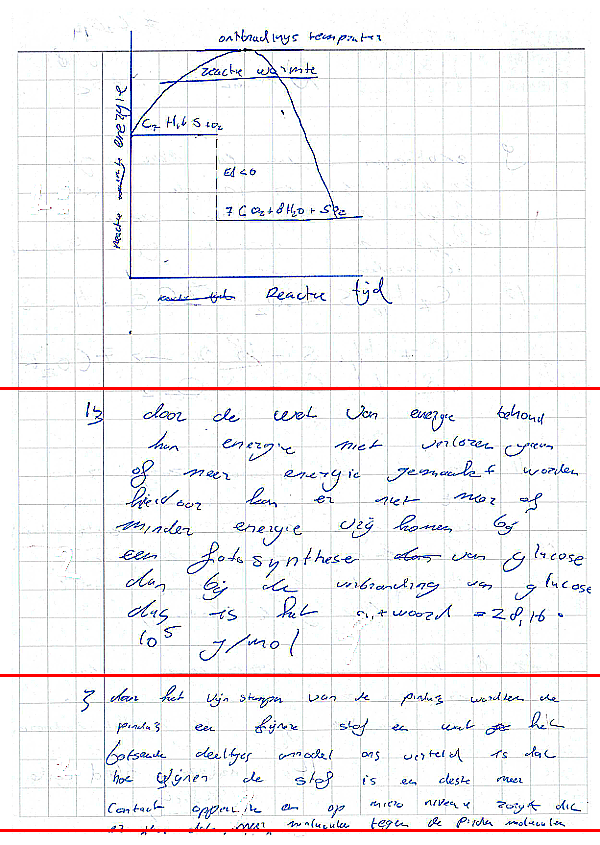 ontbradings tempratur
reactie warmte
reactie energie
C7 H16 S + O2
E<0
7 CO2 + 8H2O + SO2
Reactie tijd
13 door de wet van energie behoud
kan energie niet verloren gaan
of meer energie gemaakt worden
hierdoor kan er niet meer of
minder energie vrij komen bij
een fotosynthese van glucose
dan bij de verbranding van glucose
dus is het antwoord = 28,16 ·
10^5 J/mol
3 door het fijn stampen van de pinda's worden de
pinda's een fijnere stof en wat het
botsende deeltjes model ons verteld is dat
hoe fijner de stof is en deste meer
Contact opper en op micro niveau zorgt die
er meer moleculen tegen de pinda moleculen